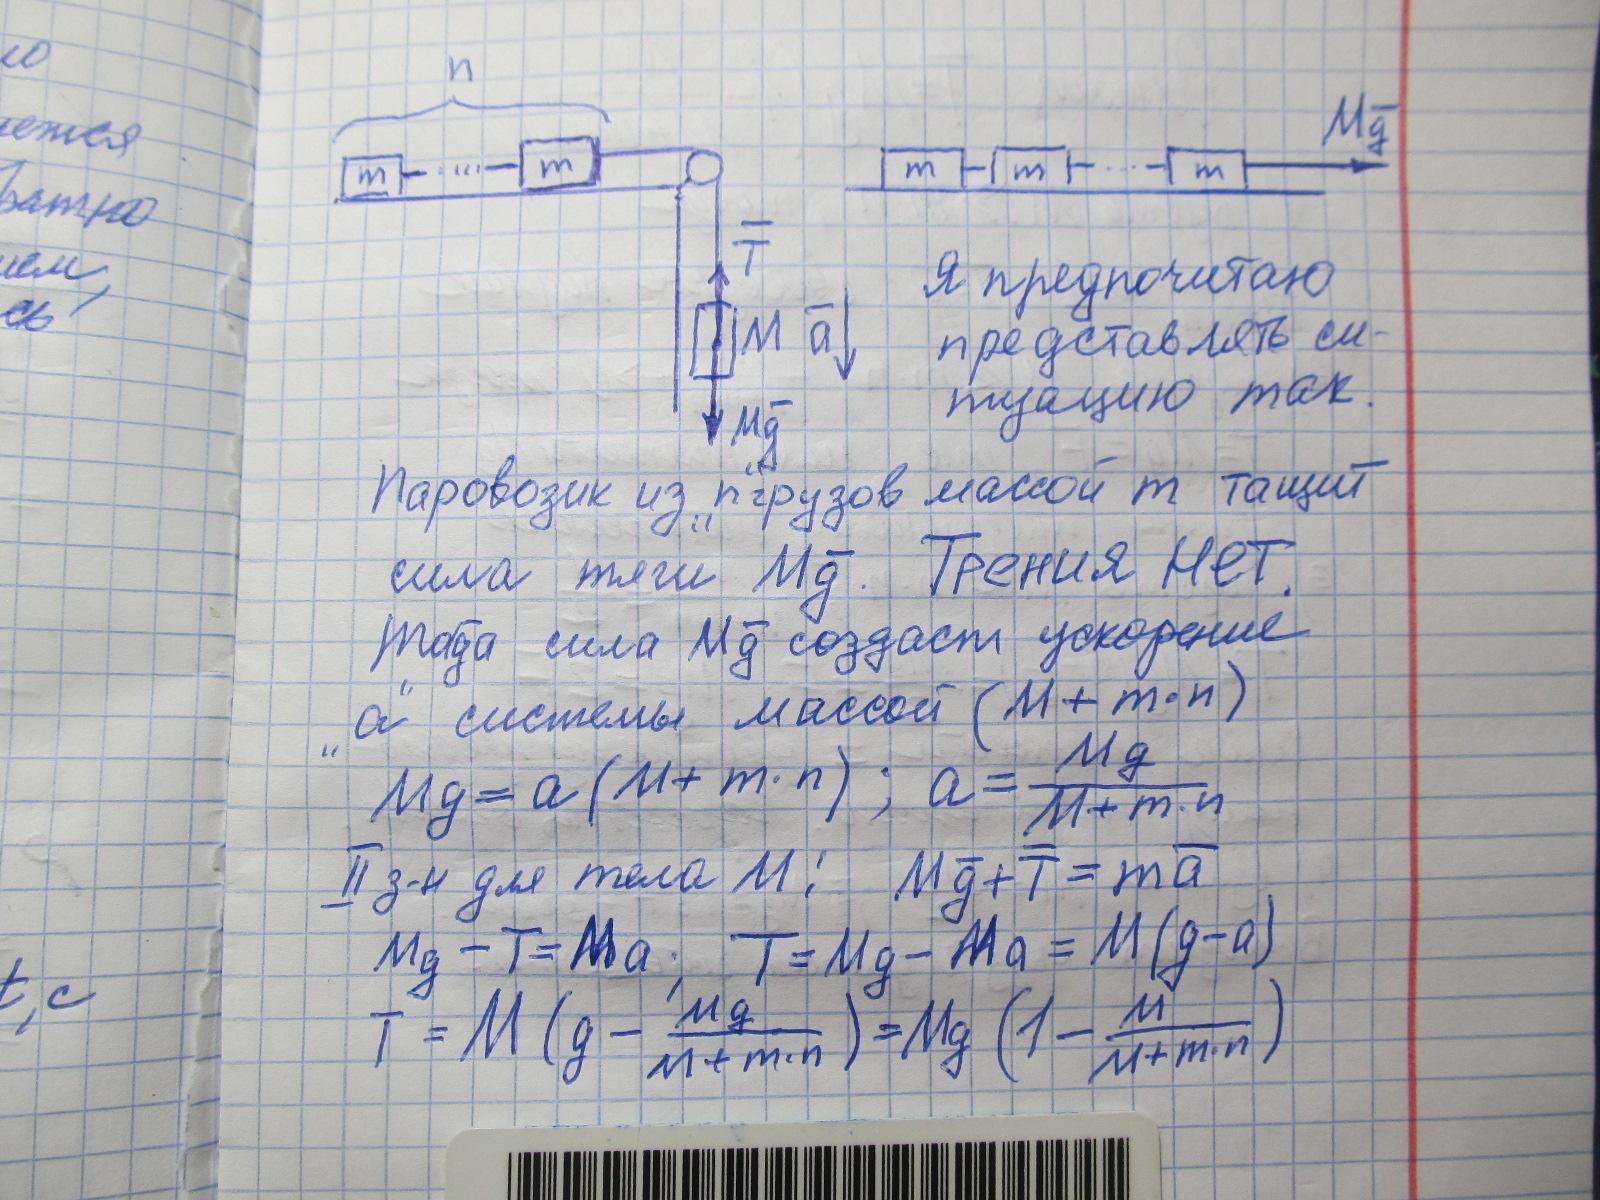 ло
жется
ватно
ием,
сь
t, с
n
m
m
T̅
M
a̅
Mg̅
m
m
m
Mg̅
Я предпочитаю
представлять си-
туацию так.
Паровозик из „n" грузов массой m тащит
сила тяги Mg̅. Трения нет.
Тогда сила Mg̅ создаст ускорение
„a" системы массой (M + m·n)
Mg = a (M + m·n) ; a = Mg/(M + m·n)
II з-н для тела M: Mg̅ + T̅ = ma̅
Mg − T = Ma; T = Mg − Ma = M(g−a)
T = M (g − Mg/(M+m·n)) = Mg (1 − M/(M+m·n))